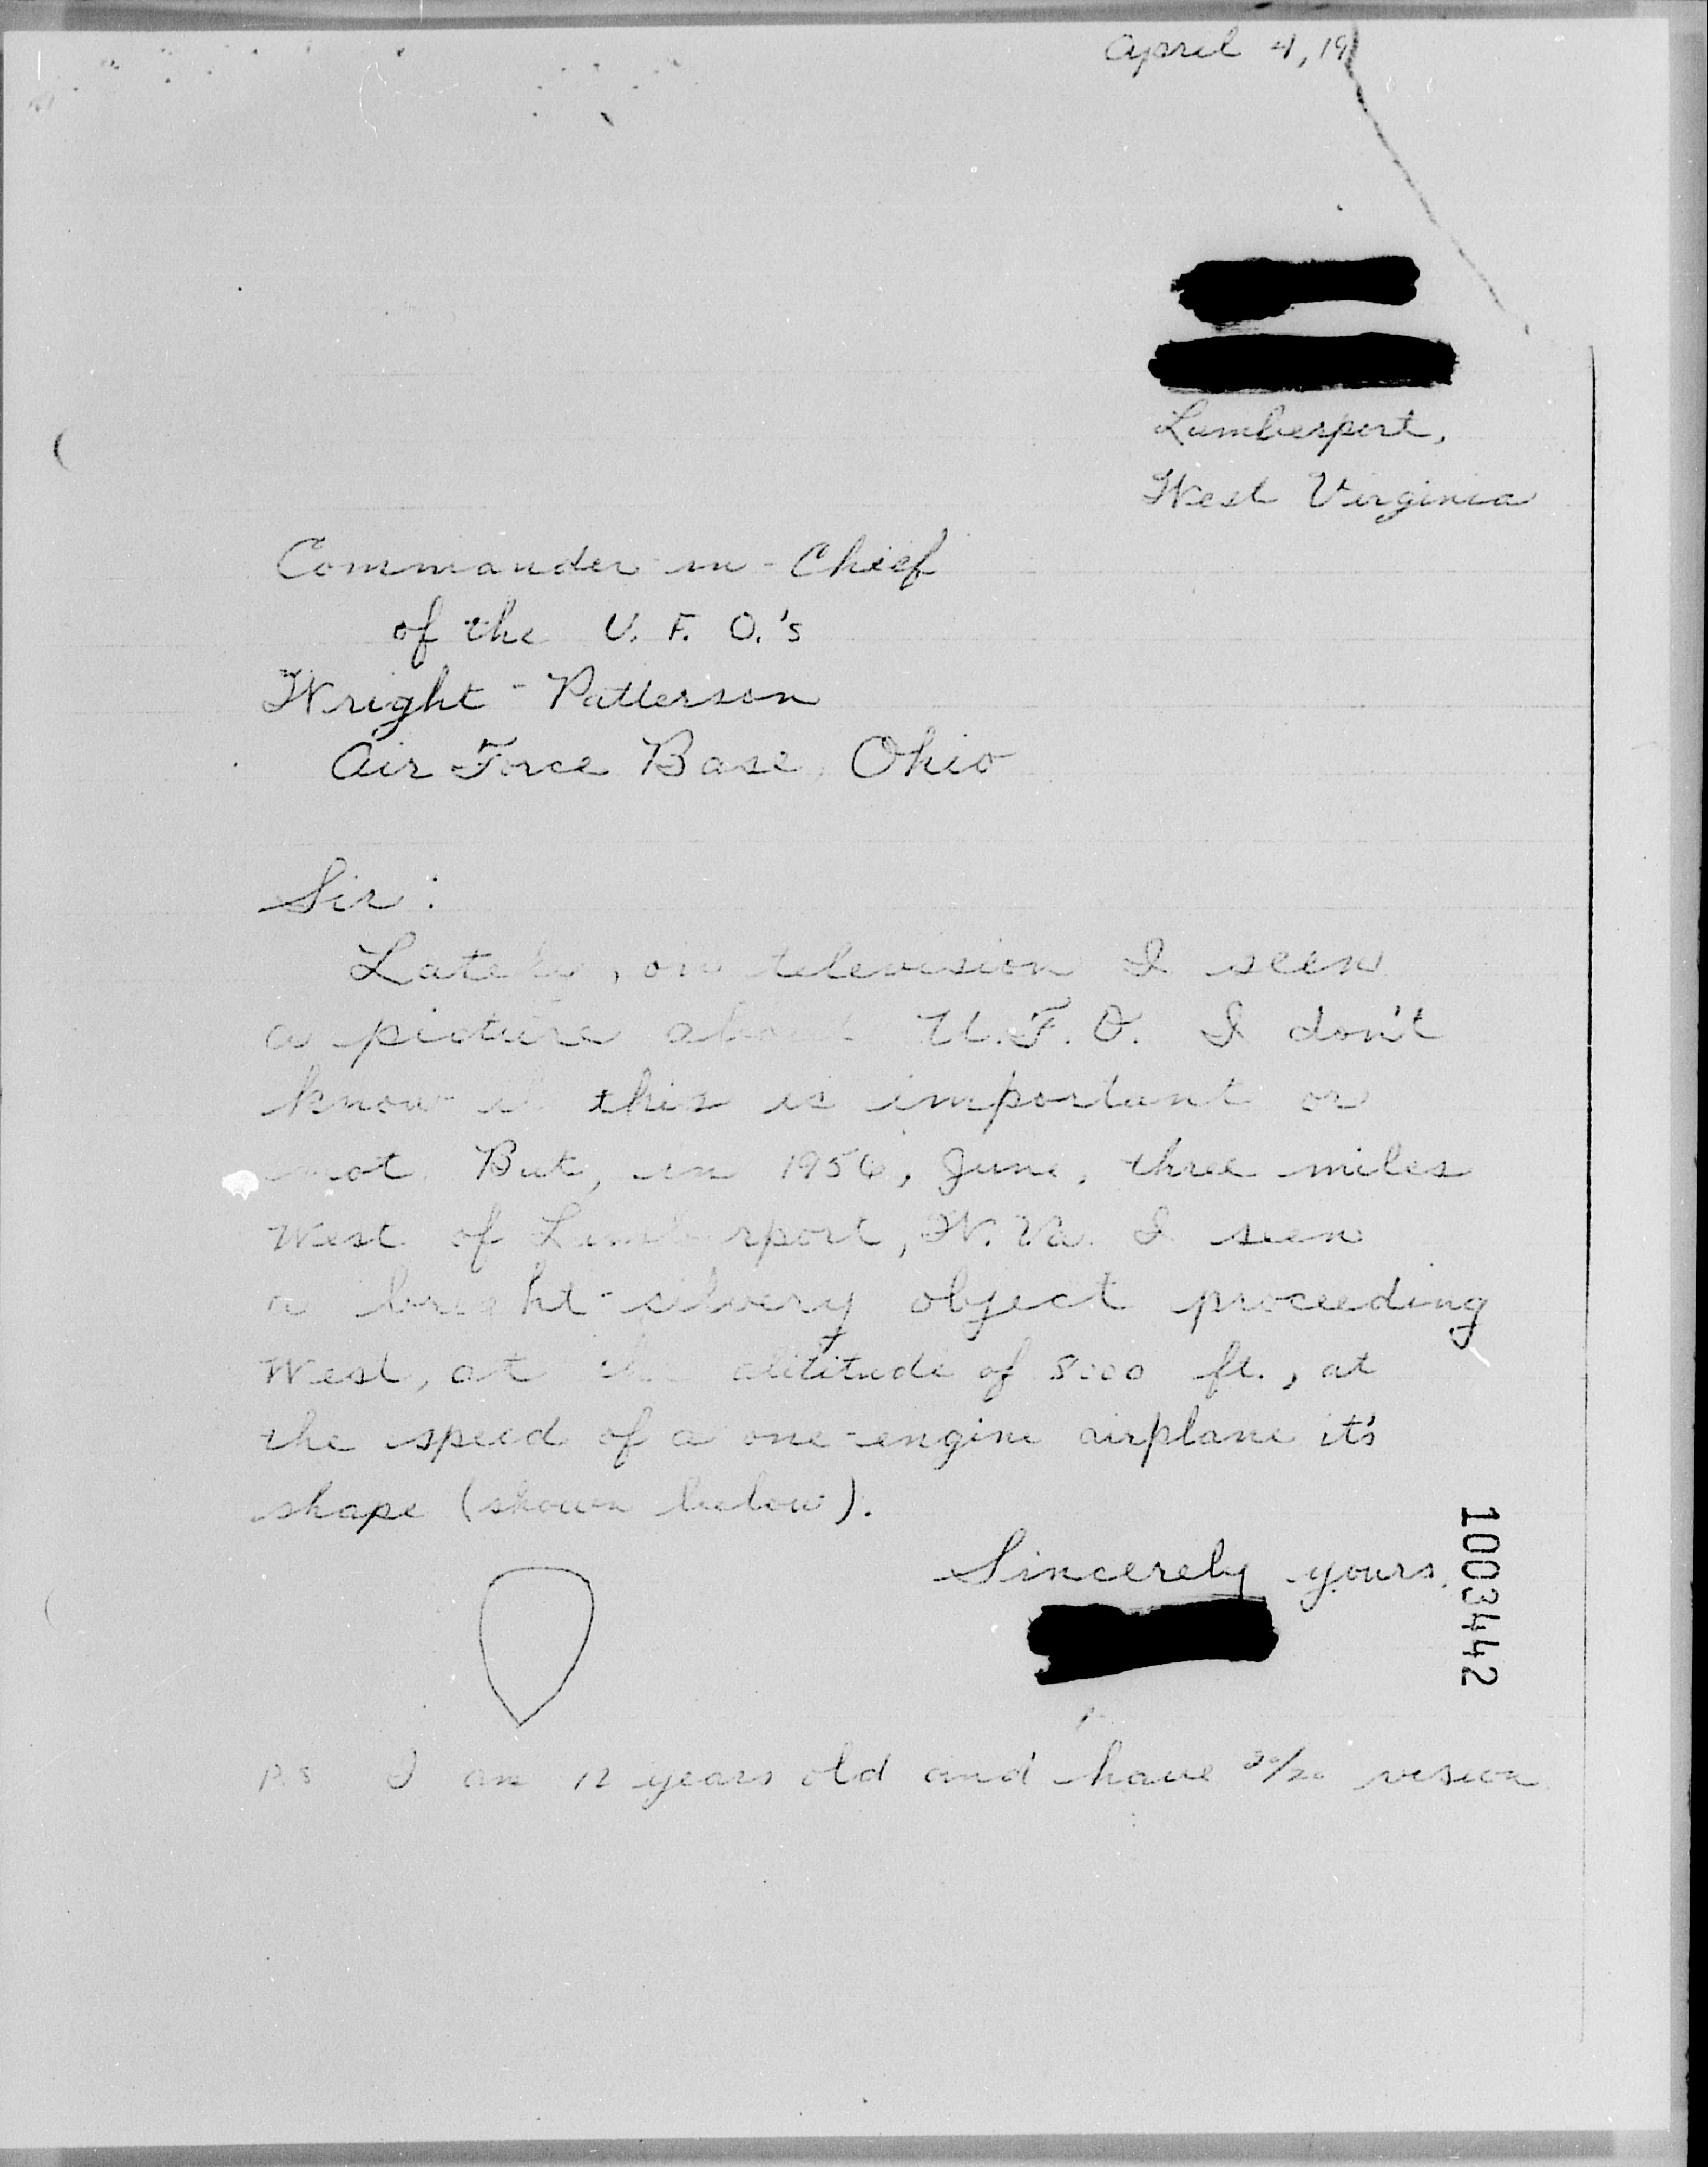 April 4, 19
Lumberport,
West Virginia
Commander-in-Chief
of the U. F. O.'s
Wright-Patterson
Air Force Base, Ohio
Sir:
Lately, on television I seen
a picture about U.F.O. I don't
know if this is important or
not. But, in 1956, June, three miles
West of Lumberport, W.Va. I seen
a bright-silvery object proceeding
West, at the altitude of 8000 ft., at
the speed of a one-engine airplane it's
shape (shown below).
Sincerely yours,
1003442
P.S. I am 12 years old and have 20/20 vision